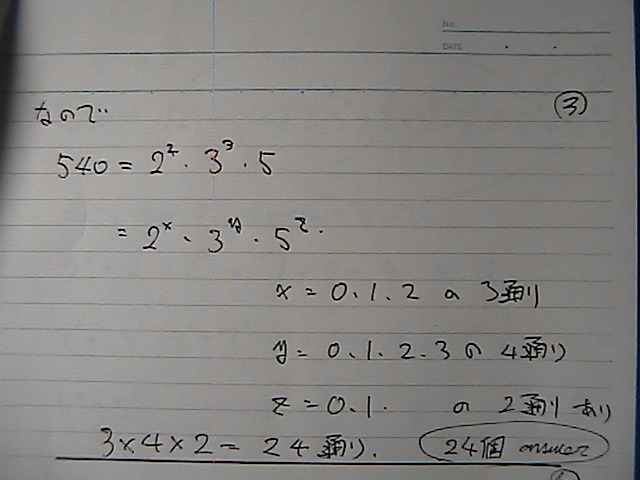 No.
DATE
③
なので
540 = 2² · 3³ · 5
= 2ˣ · 3ʸ · 5ᶻ.
x = 0. 1. 2 の 3通り
y = 0. 1. 2. 3 の 4通り
z = 0. 1. の 2通り あり
3×4×2 = 24通り. 24個 answer